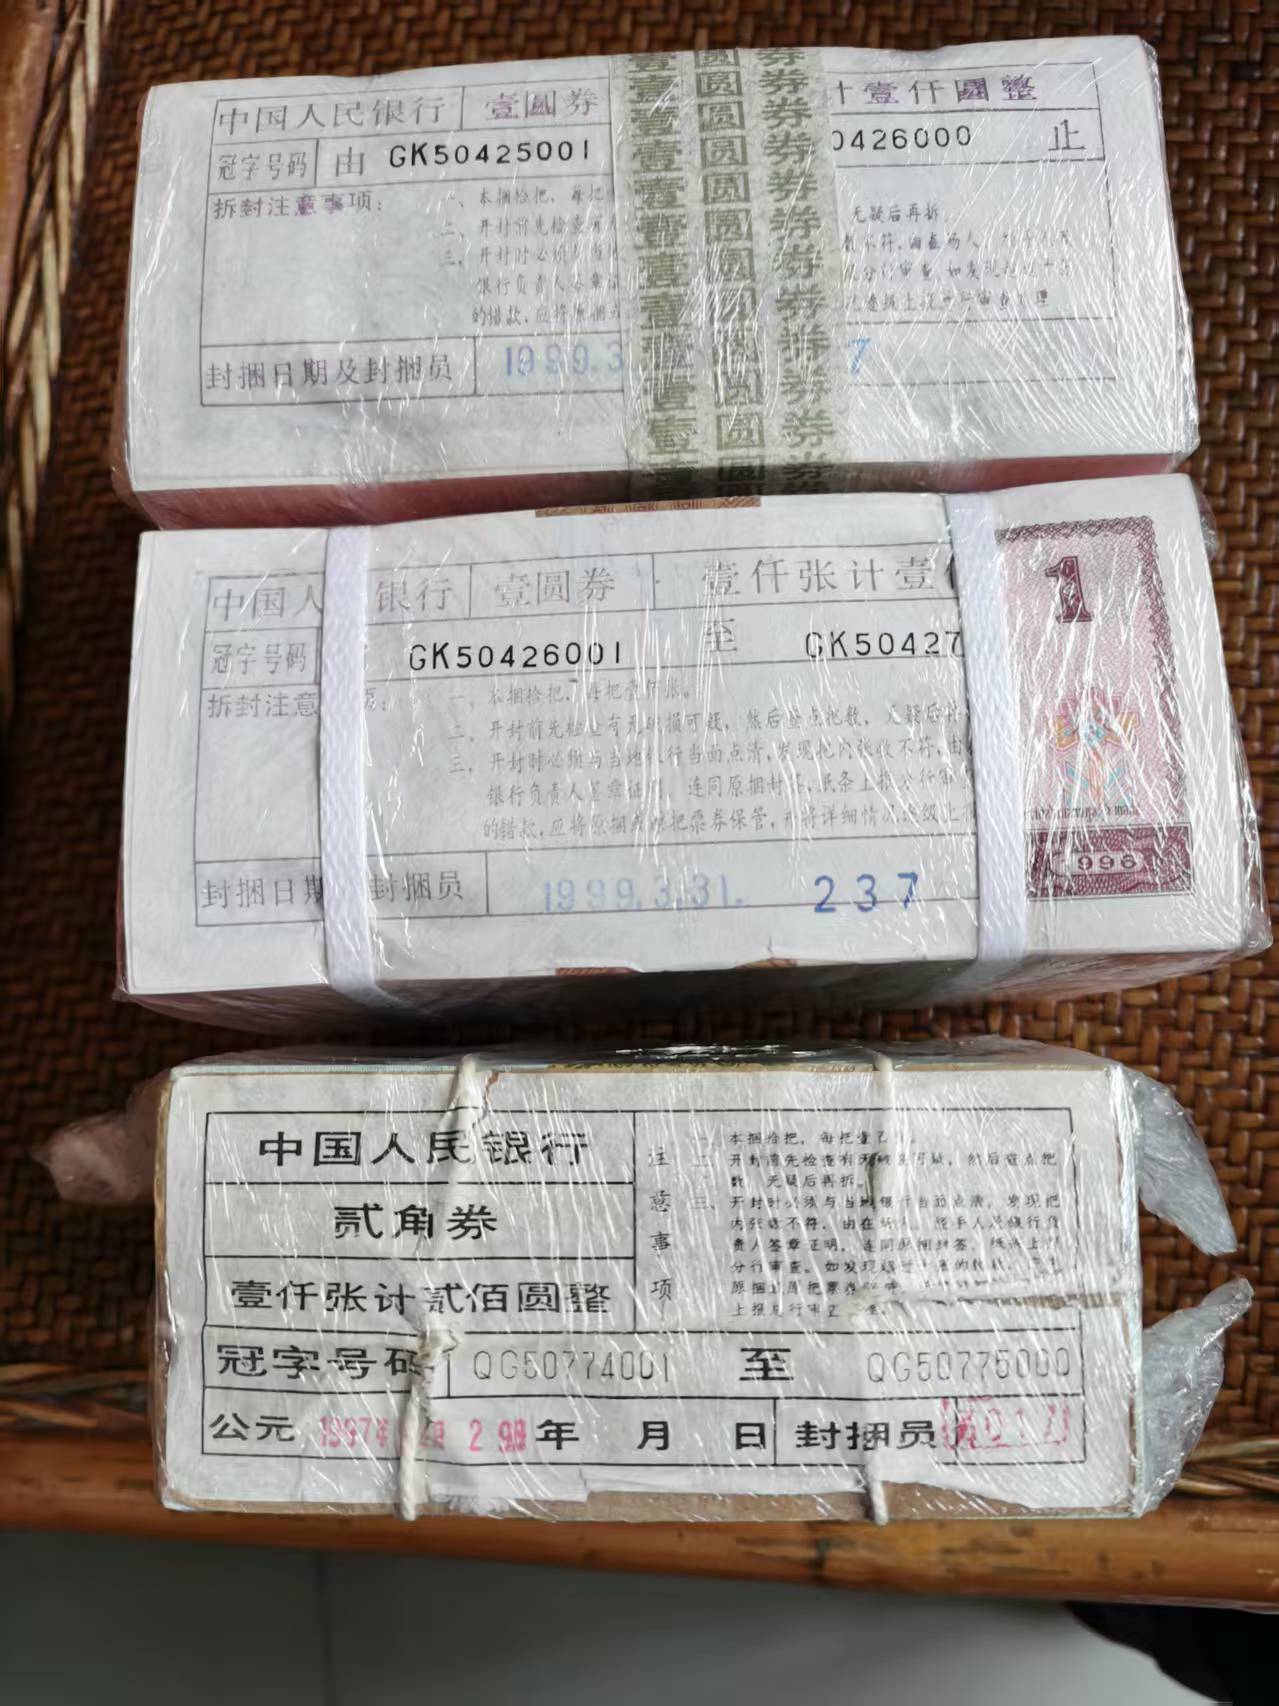 中国人民银行 壹圆券 计壹仟圆整
冠字号码 由 GK50425001 0426000 止
拆封注意事项:
一、本捆拾把,每把
二、开封前先检查有 无疑后再拆。
三、开封时必须与当地 不符,由在场人
银行负责人签章证 分行审查,如发现超过十
的错款,应将原捆 逐级上报
封捆日期及封捆员 1999.3 7
壹圆券
中国人 银行 壹圆券 壹仟张计壹
冠字号码 GK50426001 至 GK50427
拆封注意
一、本捆拾把,每把壹佰张。
二、开封前先检查有无破损可疑,然后盘点把数,无疑后
三、开封时必须与当地银行当面点清,发现把内张数不符,由
银行负责人签章证明,连同原捆封签,纸条上报分行审
的错款,应将原捆 把票券保管,并将详细情况逐级上
封捆日期 封捆员 1999.3.31. 237
1
1996
中国人民银行
贰角券
壹仟张计贰佰圆整
注意事项
一、本捆拾把,每把壹百张。
二、开封前先检查有无破损可疑,然后盘点把
数,无疑后再拆。
三、开封时必须与当地银行当面点清,发现把
内张数不符,由在场人、经手人及银行负
责人签章证明,连同原捆封签、纸条上报
分行审查。如发现超过十张的错款,
原捆 原把票券
上报总行审查
冠字号码 QG50774001 至 QG50775000
公元 1997年 298 年 月 日 封捆员 017